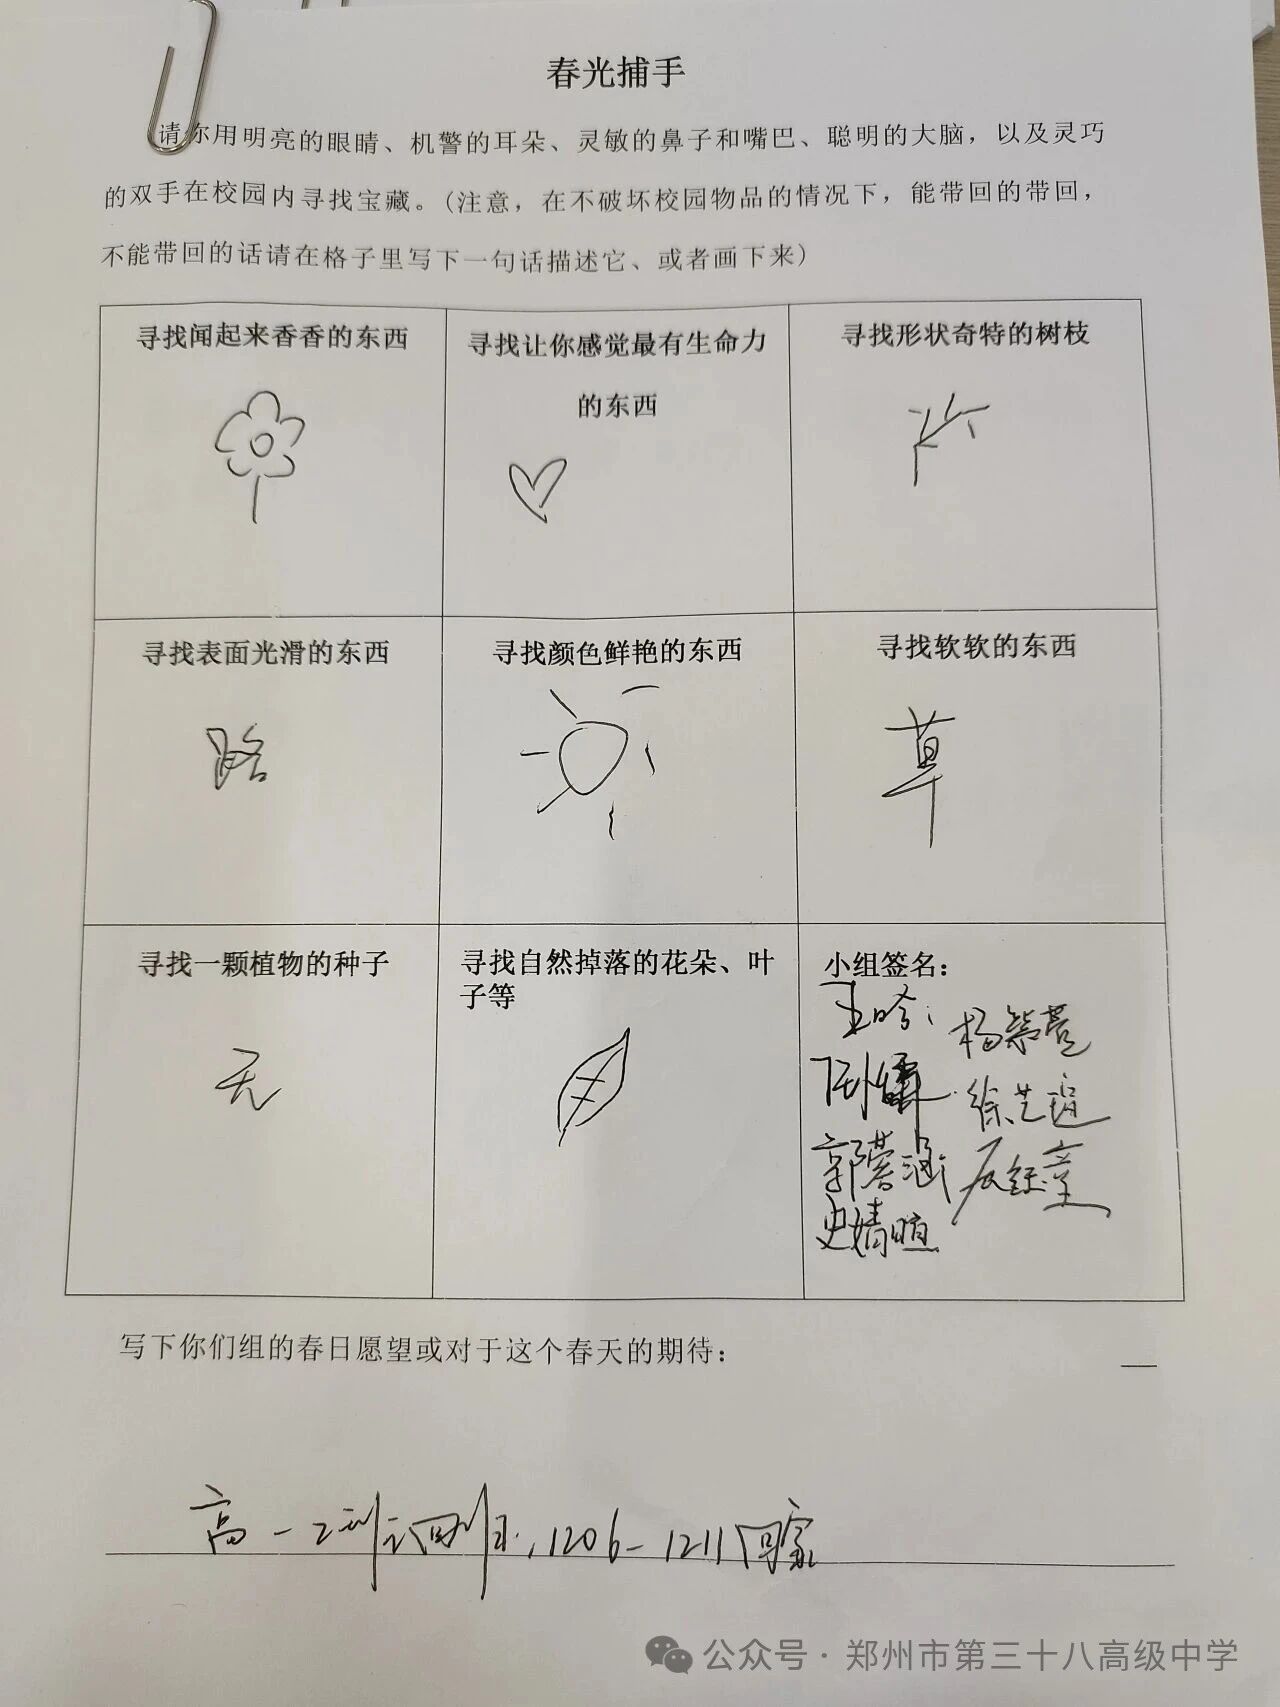 春光捕手
请你用明亮的眼睛、机警的耳朵、灵敏的鼻子和嘴巴、聪明的大脑，以及灵巧
的双手在校园内寻找宝藏。(注意，在不破坏校园物品的情况下，能带回的带回，
不能带回的话请在格子里写下一句话描述它、或者画下来)
寻找闻起来香香的东西
寻找让你感觉最有生命力
的东西
寻找形状奇特的树枝
寻找表面光滑的东西
路
寻找颜色鲜艳的东西
寻找软软的东西
草
寻找一颗植物的种子
无
寻找自然掉落的花朵、叶
子等
小组签名：
郭蓉涵
史婧暄
写下你们组的春日愿望或对于这个春天的期待：
高一
1206-1211回家
公众号·郑州市第三十八高级中学